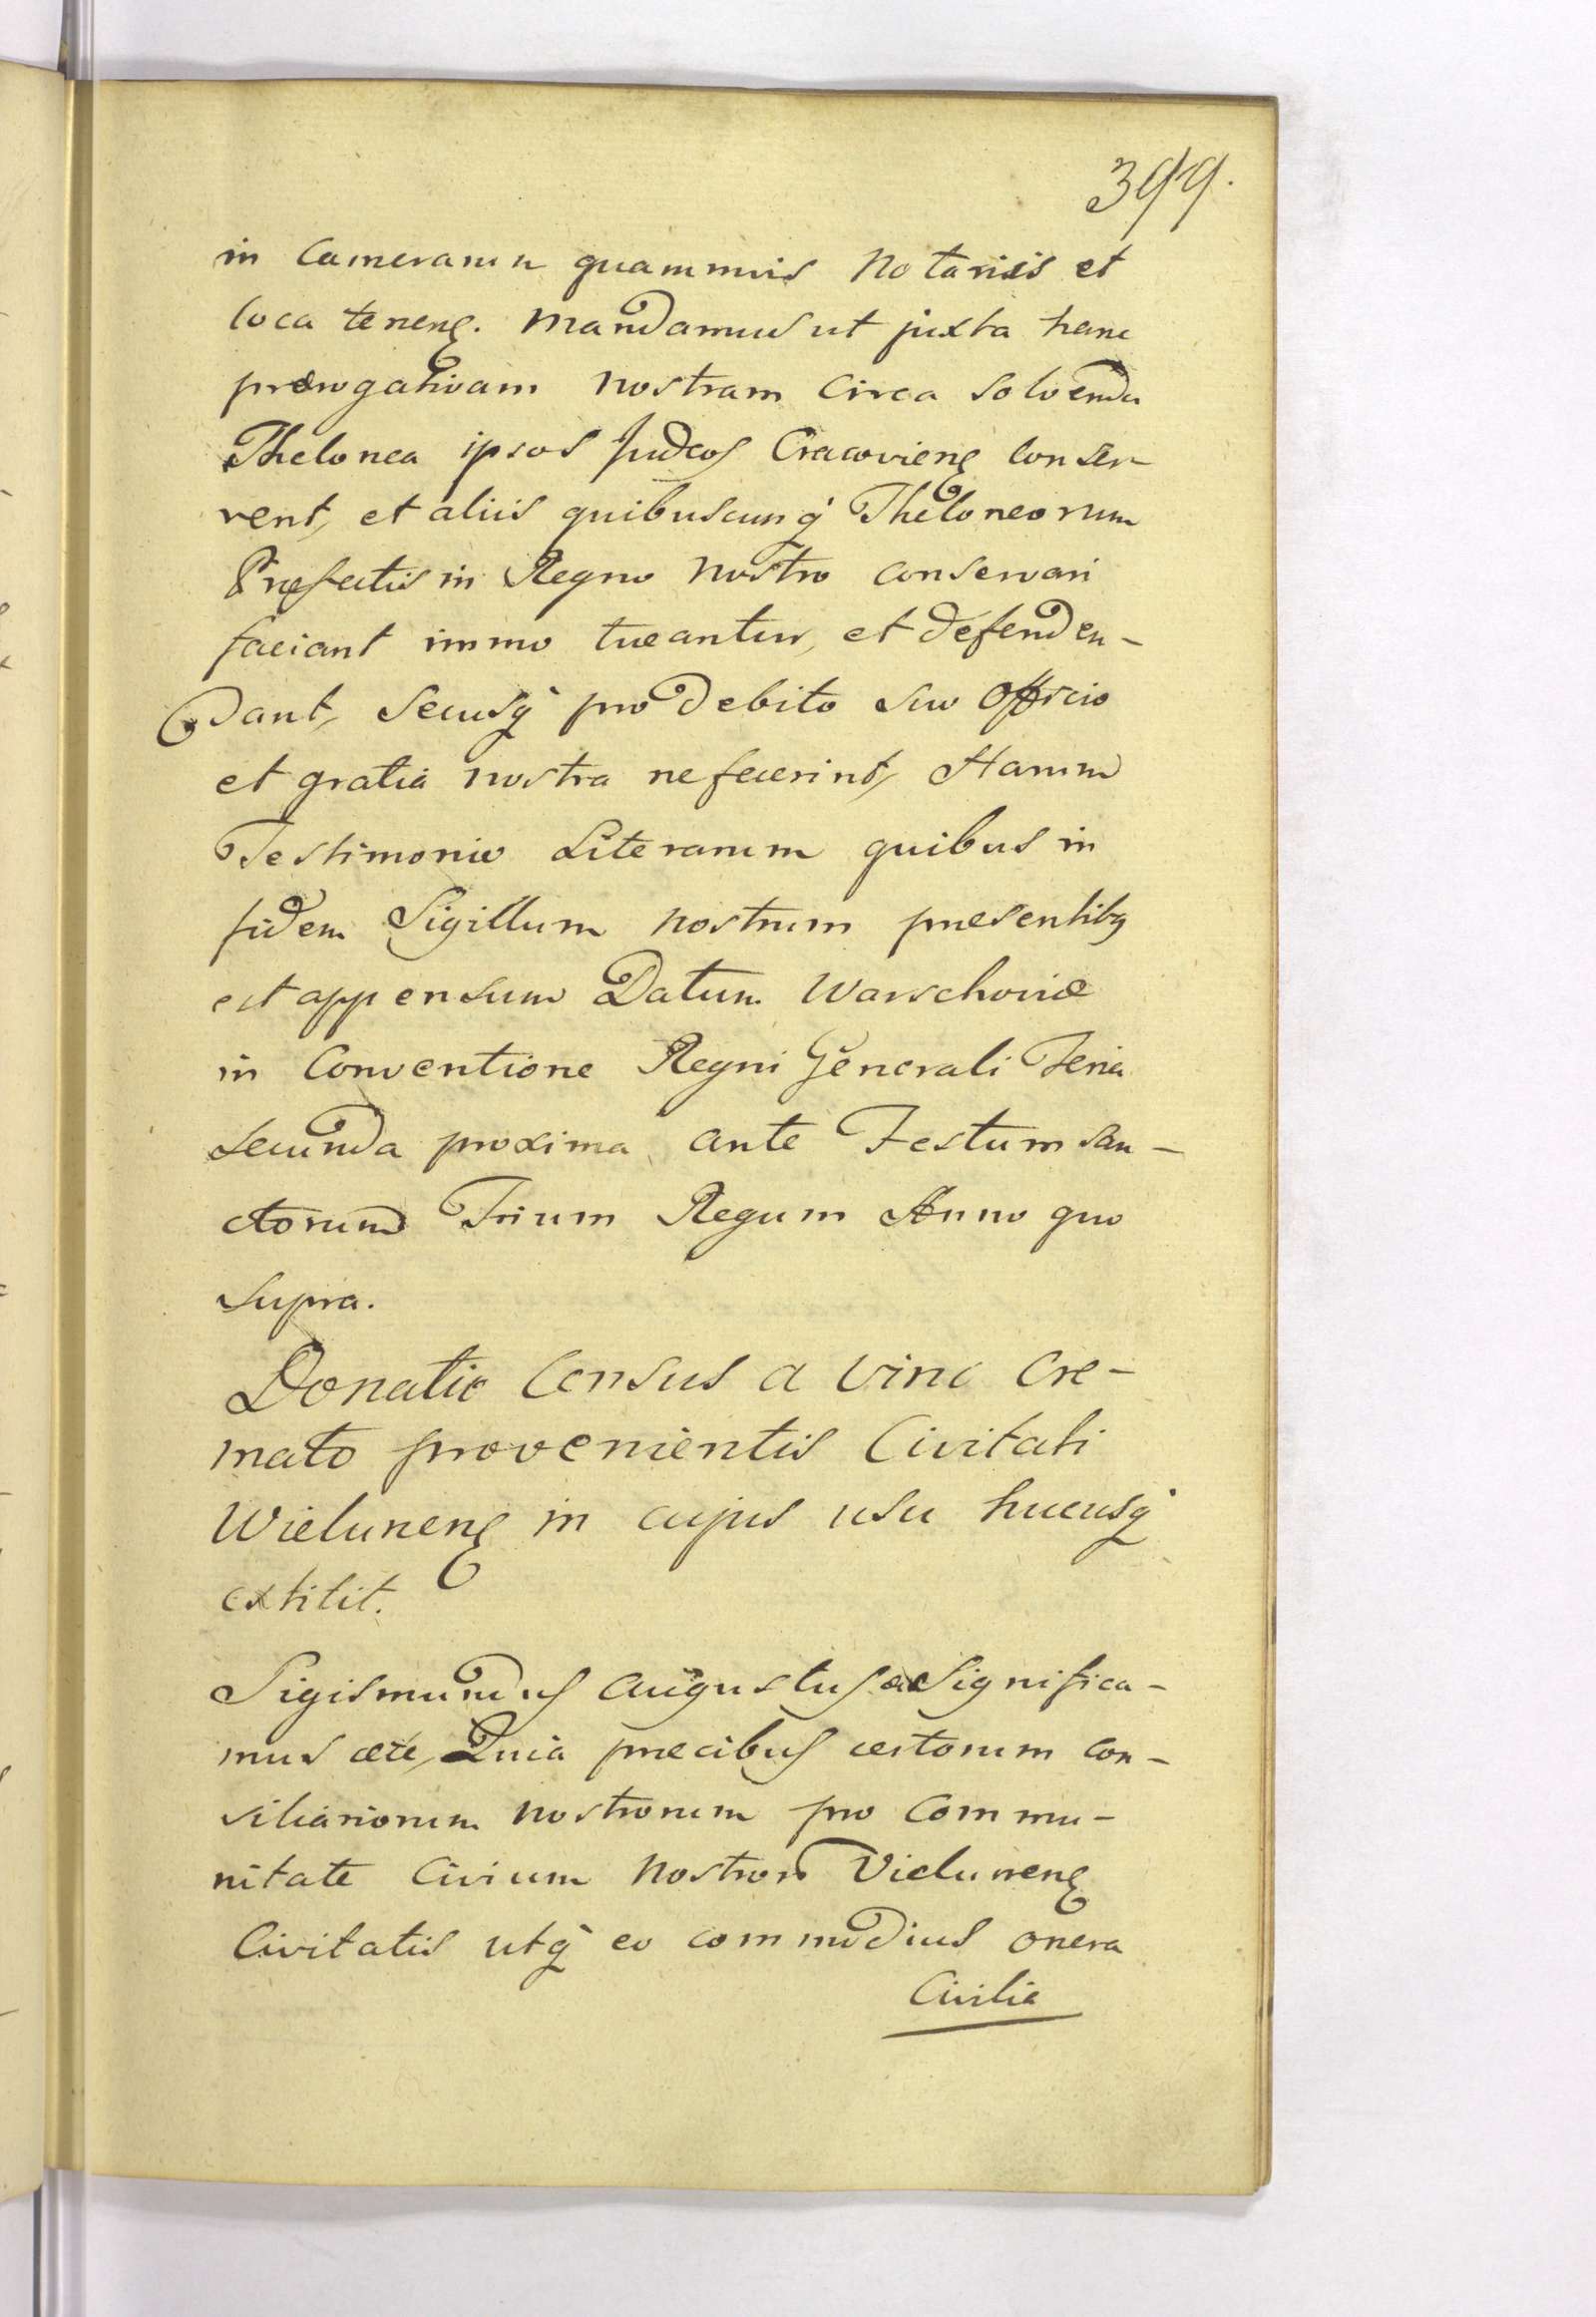 399.
in Camerarum quammvis Notariis et
loca tenenꝭ. Mandamus ut juxta hanc
prærogativam nostram circa solvenda
Thelonea ipsos Judæos Cracovienꝭ conser-
vent, et aliis quibuscunq̀ Theloneorum
Præfectis in Regno nostro conservari
faciant immo tueantur, et defenden-
dant, Secusq̀ pro debito suo officio
et gratia nostra ne fecerint, Harum
Testimonio Literarum quibus in
fidem Sigillum nostrum præsentibꝫ
est appensum Datum Warschoviæ
in Conventione Regni Generali Feria
Secunda proxima ante Festum San-
ctorum Trium Regum Anno quo
Supra.
Donatio Census a vino Cre-
mato provenientis Civitati
Wielunenꝭ in cujus usu hucusq̀
extitit.
Sigismundus Augustus Significa-
mus &c̃, Quia præcibus certorum con-
siliariorum nostrorum pro Commu-
nitate Civium Nostrorum Vielunenꝭ
Civitatis utq̀ eo commodius onera
Civilia